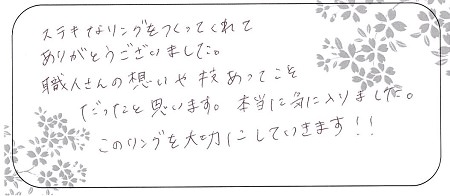 ステキなリングをつくってくれて
ありがとうございました。
職人さんの想いや技あってこそ
だったと思います。本当に気に入りました。
このリングを大切にしていきます!!